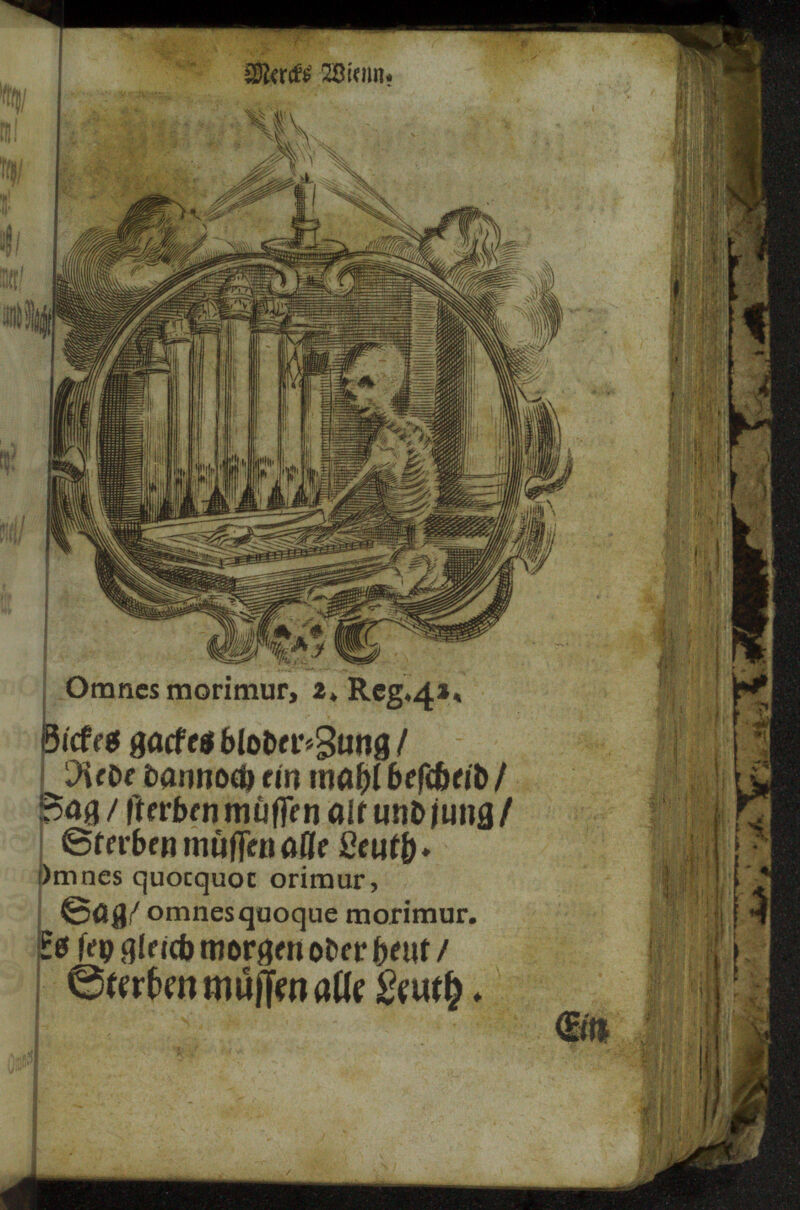 Mercks Wienn.
Omnes morimur, 2. Reg. 42.
Bickes gackes bloder-Zung /
Rede dannoch ein mahl bescheid /
Sag / sterben müssen alt und jung /
Sterben müssen alle Leuth.
Omnes quotquot orimur,
Sag / omnes quoque morimur.
Es sey gleich morgen oder heut /
Sterben müssen alle Leuth.
Ein